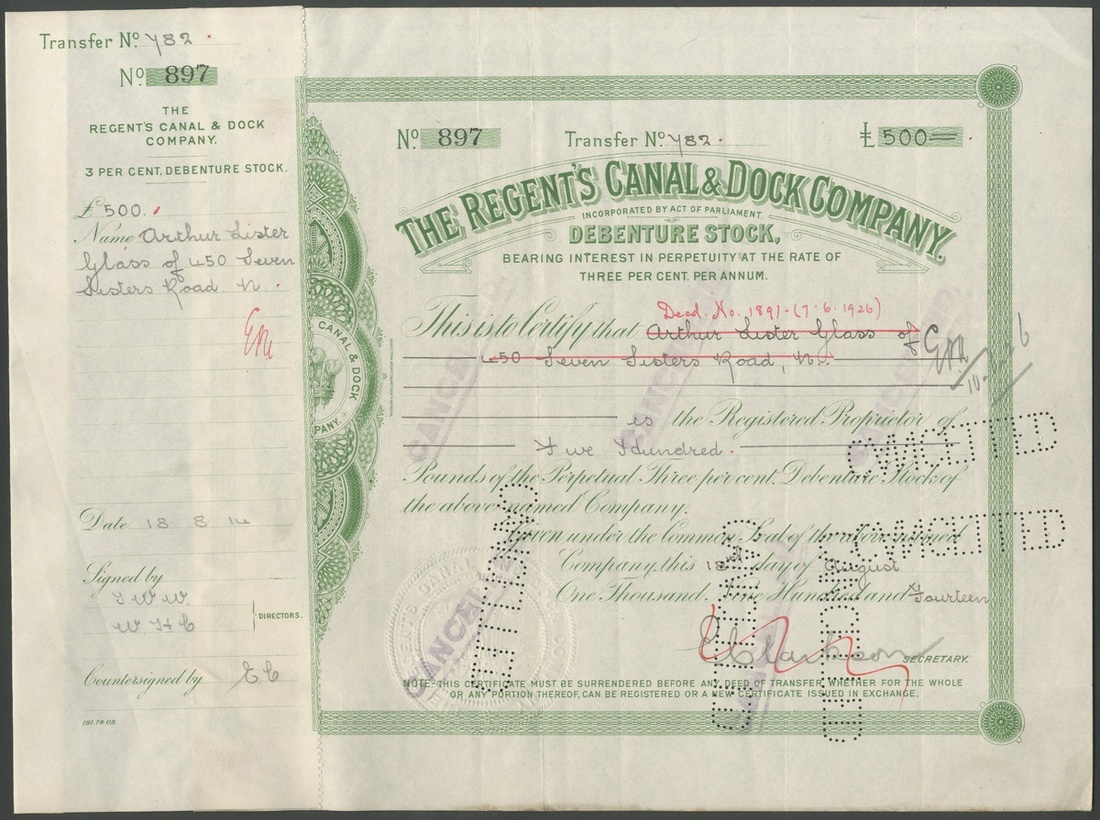 Transfer No. 782
No. 897
THE
REGENT'S CANAL & DOCK
COMPANY.
3 PER CENT. DEBENTURE STOCK.
£ 500.
Name Arthur Lister
Glass of 450 Seven
Sisters Road, N.
Date 18 8 14
Signed by
W. H C
DIRECTORS.
Countersigned by E C
191.14.09.
CANAL & DOCK
No. 897
Transfer No. 782.
£ 500—
THE REGENT'S CANAL & DOCK COMPANY.
INCORPORATED BY ACT OF PARLIAMENT.
DEBENTURE STOCK,
BEARING INTEREST IN PERPETUITY AT THE RATE OF
THREE PER CENT. PER ANNUM.
Deed. No. 1891-(7.6.1926)
This is to Certify that Arthur Lister Glass of
450 Seven Sisters Road, N.
is the Registered Proprietor of
Five Hundred.
Pounds of the Perpetual Three per cent. Debenture Stock of
the above named Company.
Given under the Common Seal of the above named
Company, this 18th day of August
One Thousand Nine Hundred and Fourteen
E Clarkson SECRETARY.
NOTE: THIS CERTIFICATE MUST BE SURRENDERED BEFORE ANY DEED OF TRANSFER, WHETHER FOR THE WHOLE
OR ANY PORTION THEREOF, CAN BE REGISTERED OR A NEW CERTIFICATE ISSUED IN EXCHANGE.
CANCELLED
CANCELLED
CANCELLED
CANCELLED
CANCELLED